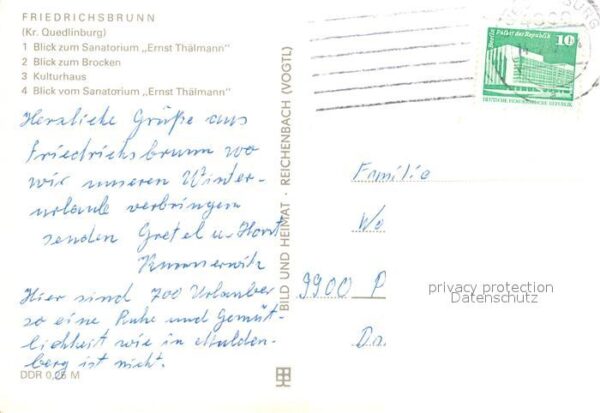 FRIEDRICHSBRUNN
(Kr. Quedlinburg)
1 Blick zum Sanatorium „Ernst Thälmann"
2 Blick zum Brocken
3 Kulturhaus
4 Blick vom Sanatorium „Ernst Thälmann"
Herzliche Grüße aus
Friedrichsbrunn wo
wir unseren Winter-
urlaub verbringen
senden Gretel u. Horst
Hier sind 700 Urlauber
so eine Ruhe und Gemüt-
lichkeit wie in Mulden-
berg ist nicht.
DDR 0,25 M
BILD UND HEIMAT · REICHENBACH (VOGTL)
BURG
Berlin Palast der Republik
10
DEUTSCHE DEMOKRATISCHE REPUBLIK
Familie
9900 P
privacy protection
Datenschutz